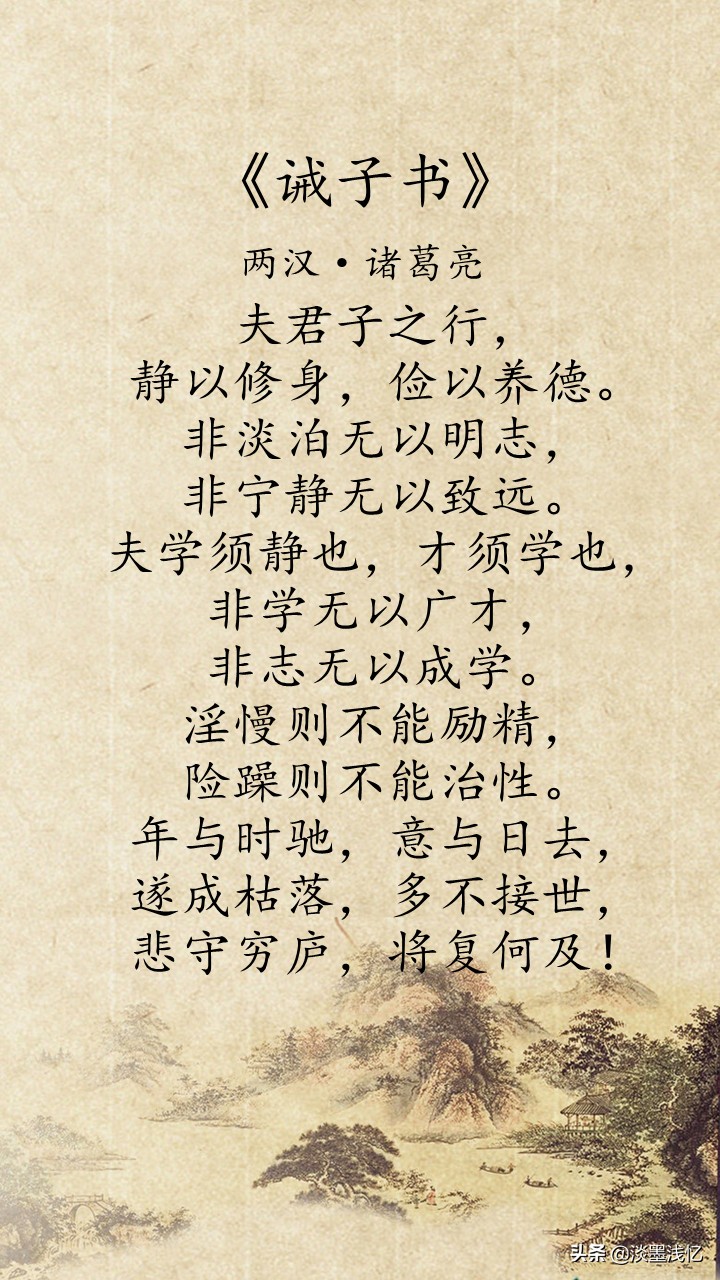 《诫子书》
两汉·诸葛亮
夫君子之行，
静以修身，俭以养德。
非淡泊无以明志，
非宁静无以致远。
夫学须静也，才须学也，
非学无以广才，
非志无以成学。
淫慢则不能励精，
险躁则不能治性。
年与时驰，意与日去，
遂成枯落，多不接世，
悲守穷庐，将复何及！
头条 @淡墨浅忆